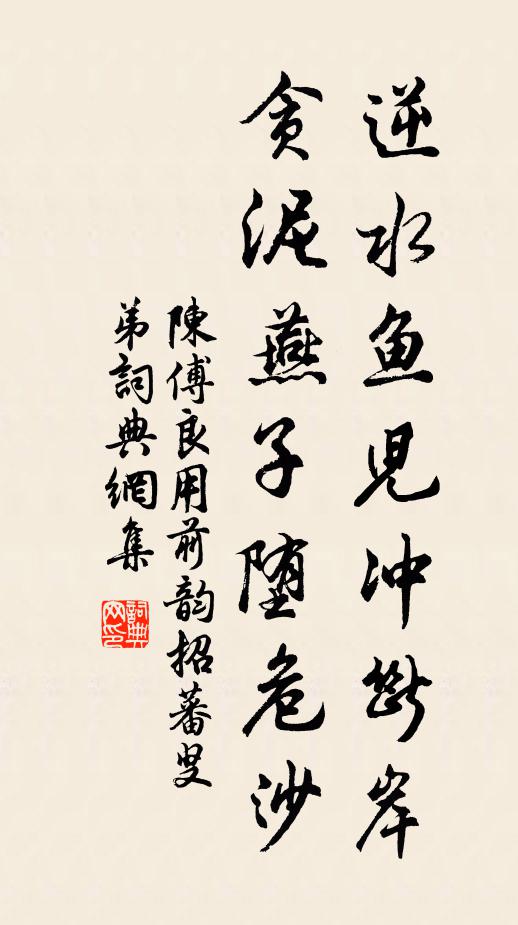 逆水鱼児冲断岸
贪泥燕子堕危沙
陳傅良用前韵招蕃叟
弟詞典網集
詞典网印